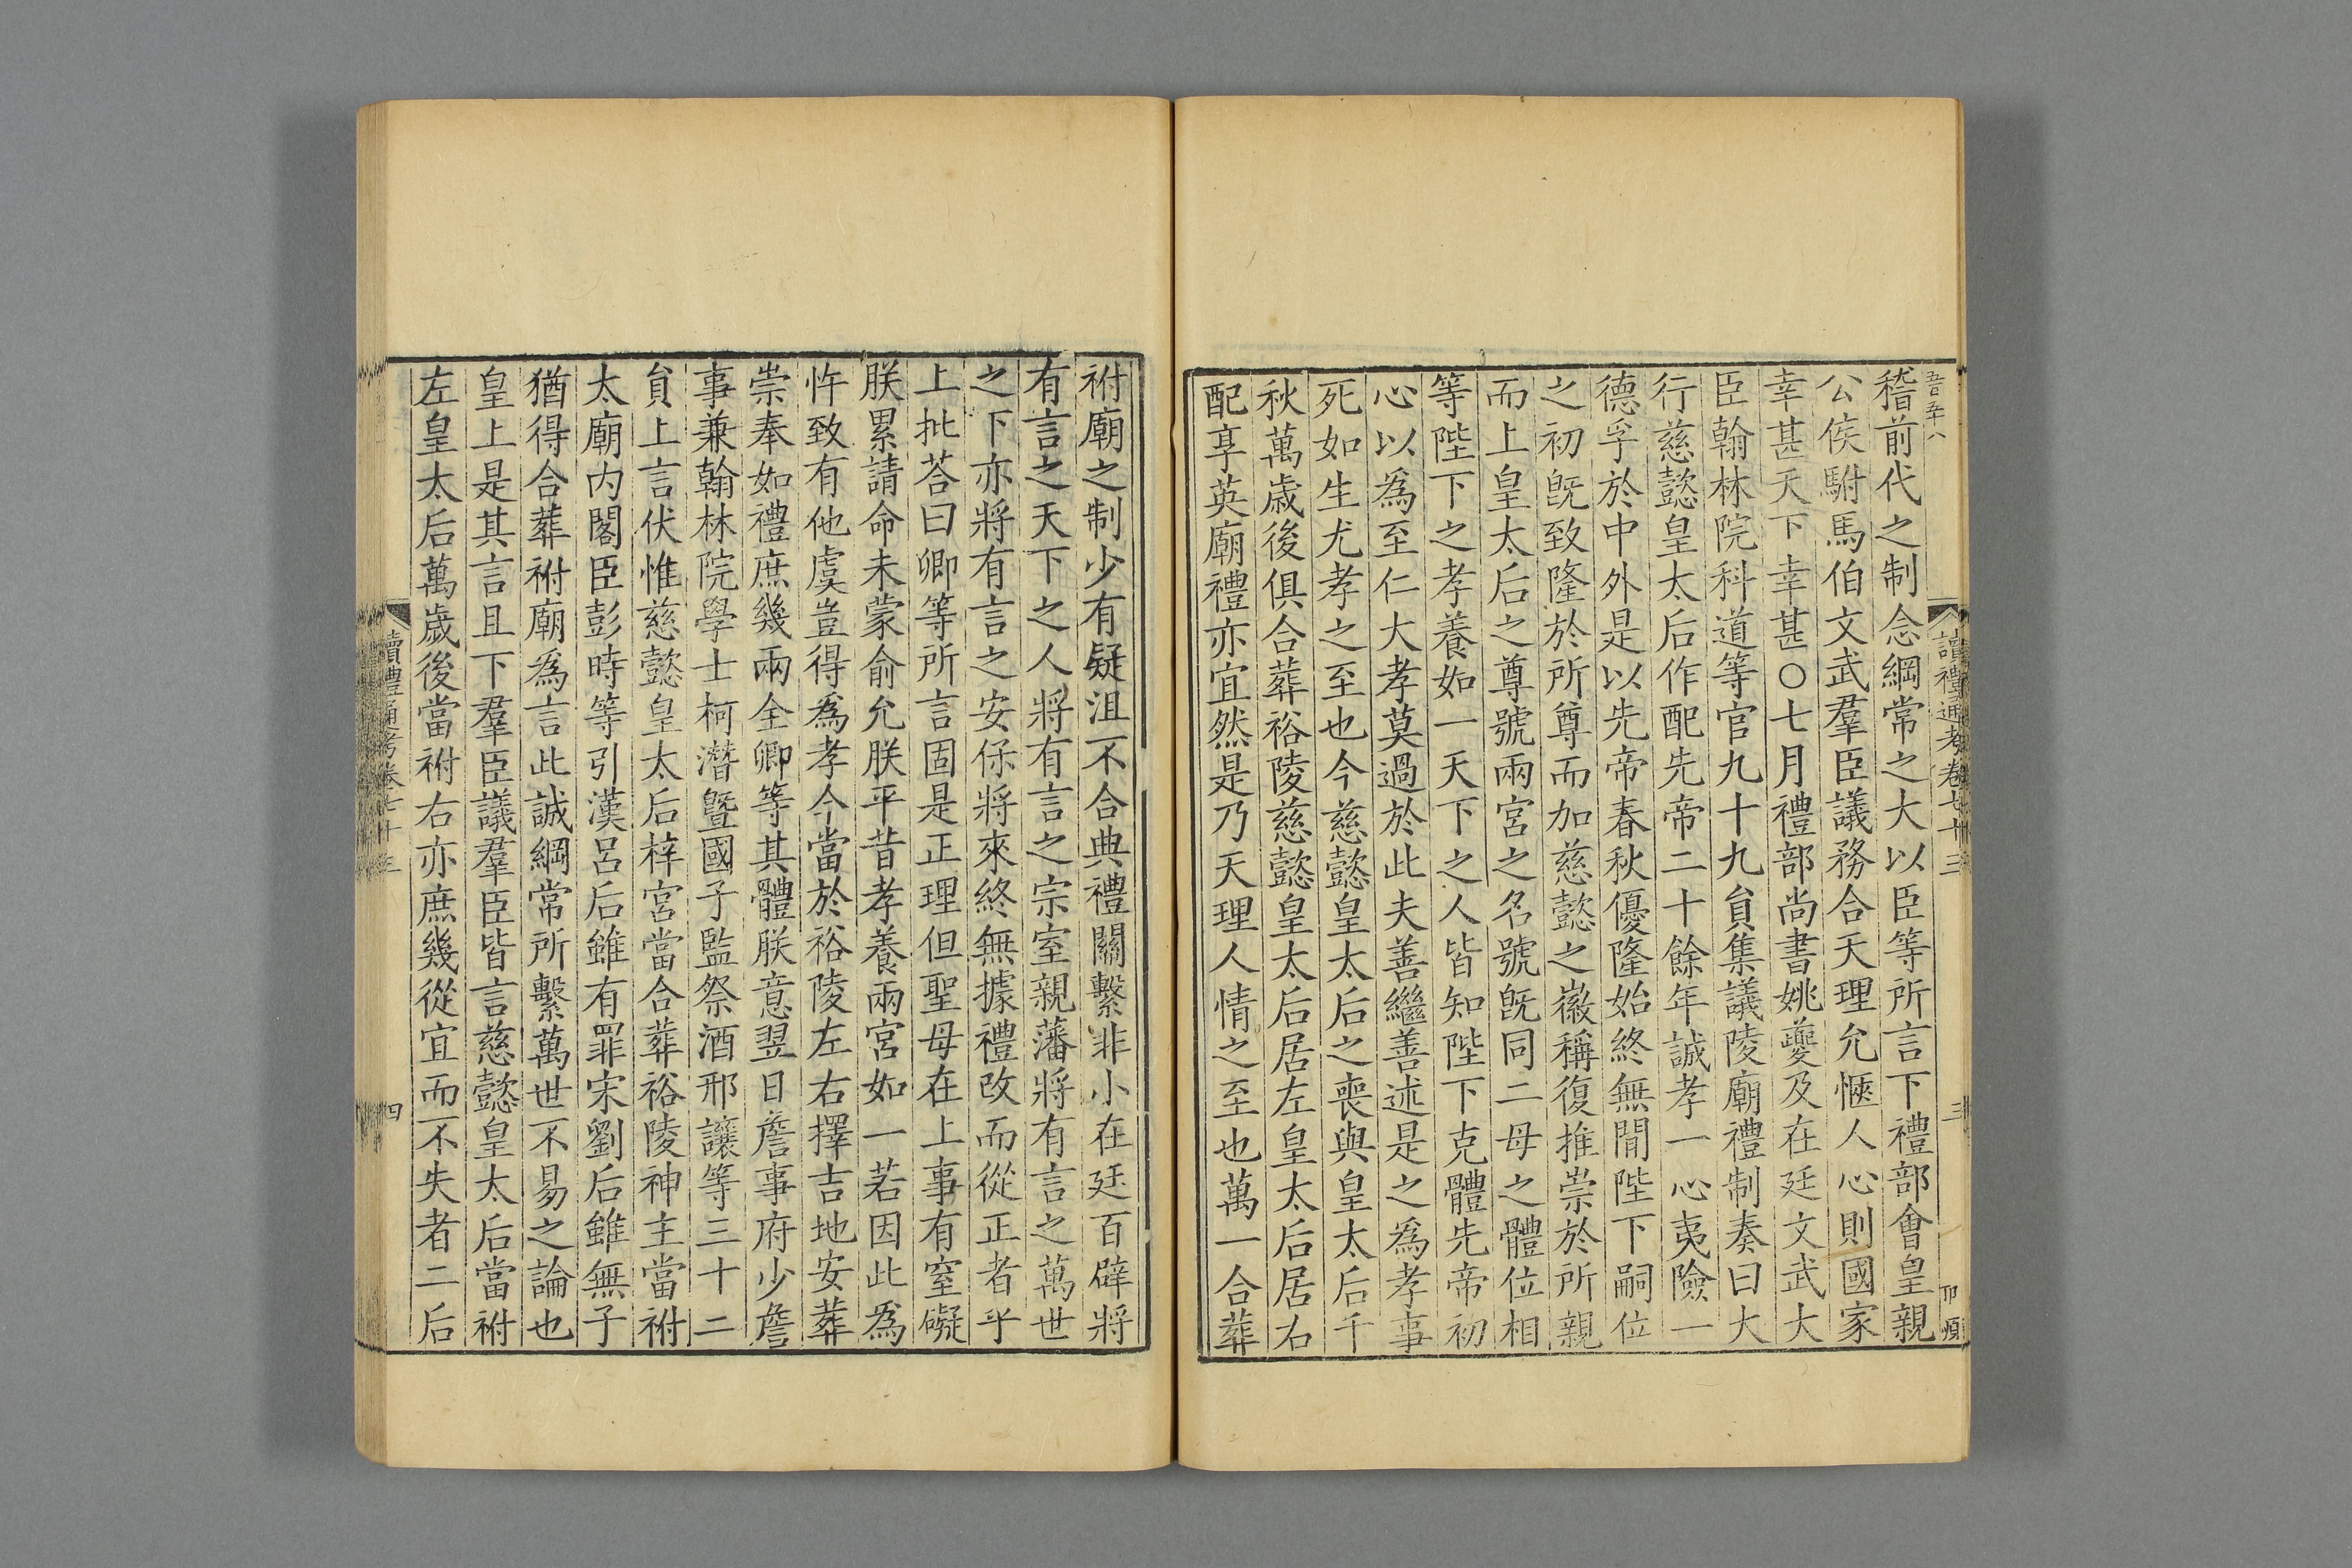 五百五十八
讀禮通考卷七十三
三
稽前代之制念綱常之大以臣等所言下禮部會皇親
公侯駙馬伯文武羣臣議務合天理允愜人心則國家
幸甚天下幸甚○七月禮部尚書姚夔及在廷文武大
臣翰林院科道等官九十九員集議陵廟禮制奏曰大
行慈懿皇太后作配先帝二十餘年誠孝一心夷險一
德孚於中外是以先帝春秋優隆始終無閒陛下嗣位
之初旣致隆於所尊而加慈懿之徽稱復推崇於所親
而上皇太后之尊號兩宮之名號旣同二母之體位相
等陛下之孝養如一天下之人皆知陛下克體先帝初
心以為至仁大孝莫過於此夫善繼善述是之爲孝事
死如生尤孝之至也今慈懿皇太后之喪與皇太后千
秋萬歲後俱合葬裕陵慈懿皇太后居左皇太后居右
配享英廟禮亦宜然是乃天理人情之至也萬一合葬
祔廟之制少有疑沮不合典禮關繫非小在廷百辟將
有言之天下之人將有言之宗室親藩將有言之萬世
之下亦將有言之安保將來終無據禮改而從正者乎
上批荅曰卿等所言固是正理但聖母在上事有窒礙
朕累請命未蒙俞允朕平昔孝養兩宮如一若因此爲
忤致有他虞豈得爲孝今當於裕陵左右擇吉地安葬
崇奉如禮庶幾兩全卿等其體朕意翌日詹事府少詹
事兼翰林院學士柯潛曁國子監祭酒邢讓等三十二
員上言伏惟慈懿皇太后梓宮當合葬裕陵神主當祔
太廟内閣臣彭時等引漢呂后雖有罪宋劉后雖無子
猶得合葬祔廟爲言此誠綱常所繫萬世不易之論也
皇上是其言且下羣臣議羣臣皆言慈懿皇太后當祔
左皇太后萬歲後當祔右亦庶幾從宜而不失者二后
讀禮通考卷七十三
四